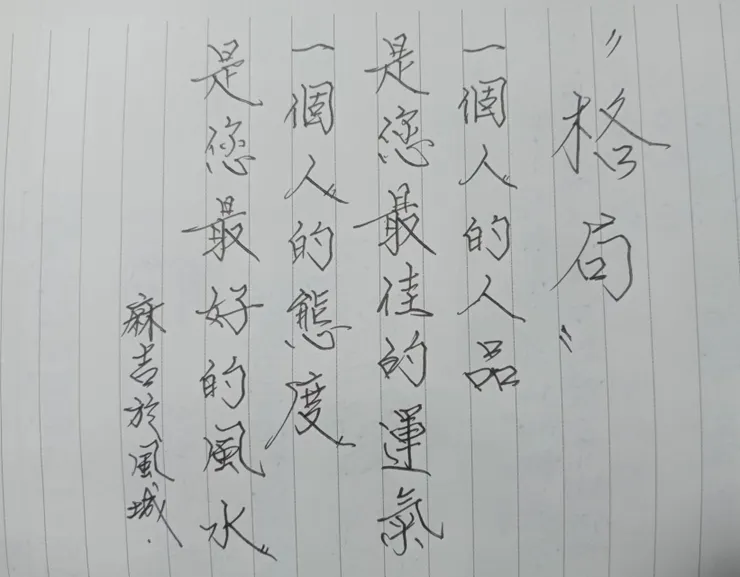 "格局"
一個人的人品
是您最佳的運氣
一個人的態度
是您最好的風水
麻吉於風城.